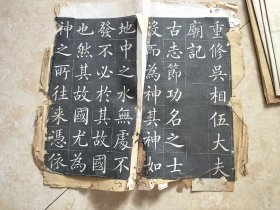 重修吳相伍大夫
廟記
古志節功名之士
歿而為神其神如
地中之水無處不
發不必於其故國
也然其故國尤為
神之所往来憑依